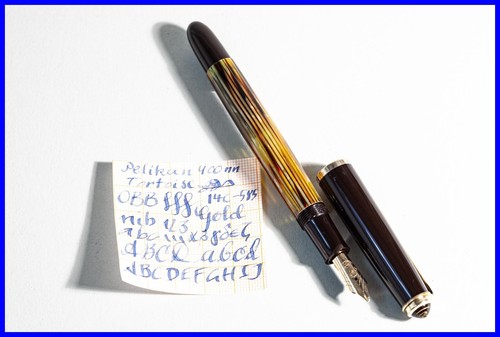 Pelikan 400nn
Tortoise
OBB fff 14c-585
nib 123 gold
abc
ABCD abcd
ABCDEFGHIJ